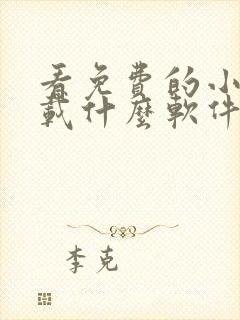 看免費的小
載什麼軟件
李克